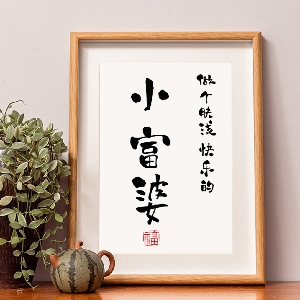 做个肤浅快乐的
小富婆
福